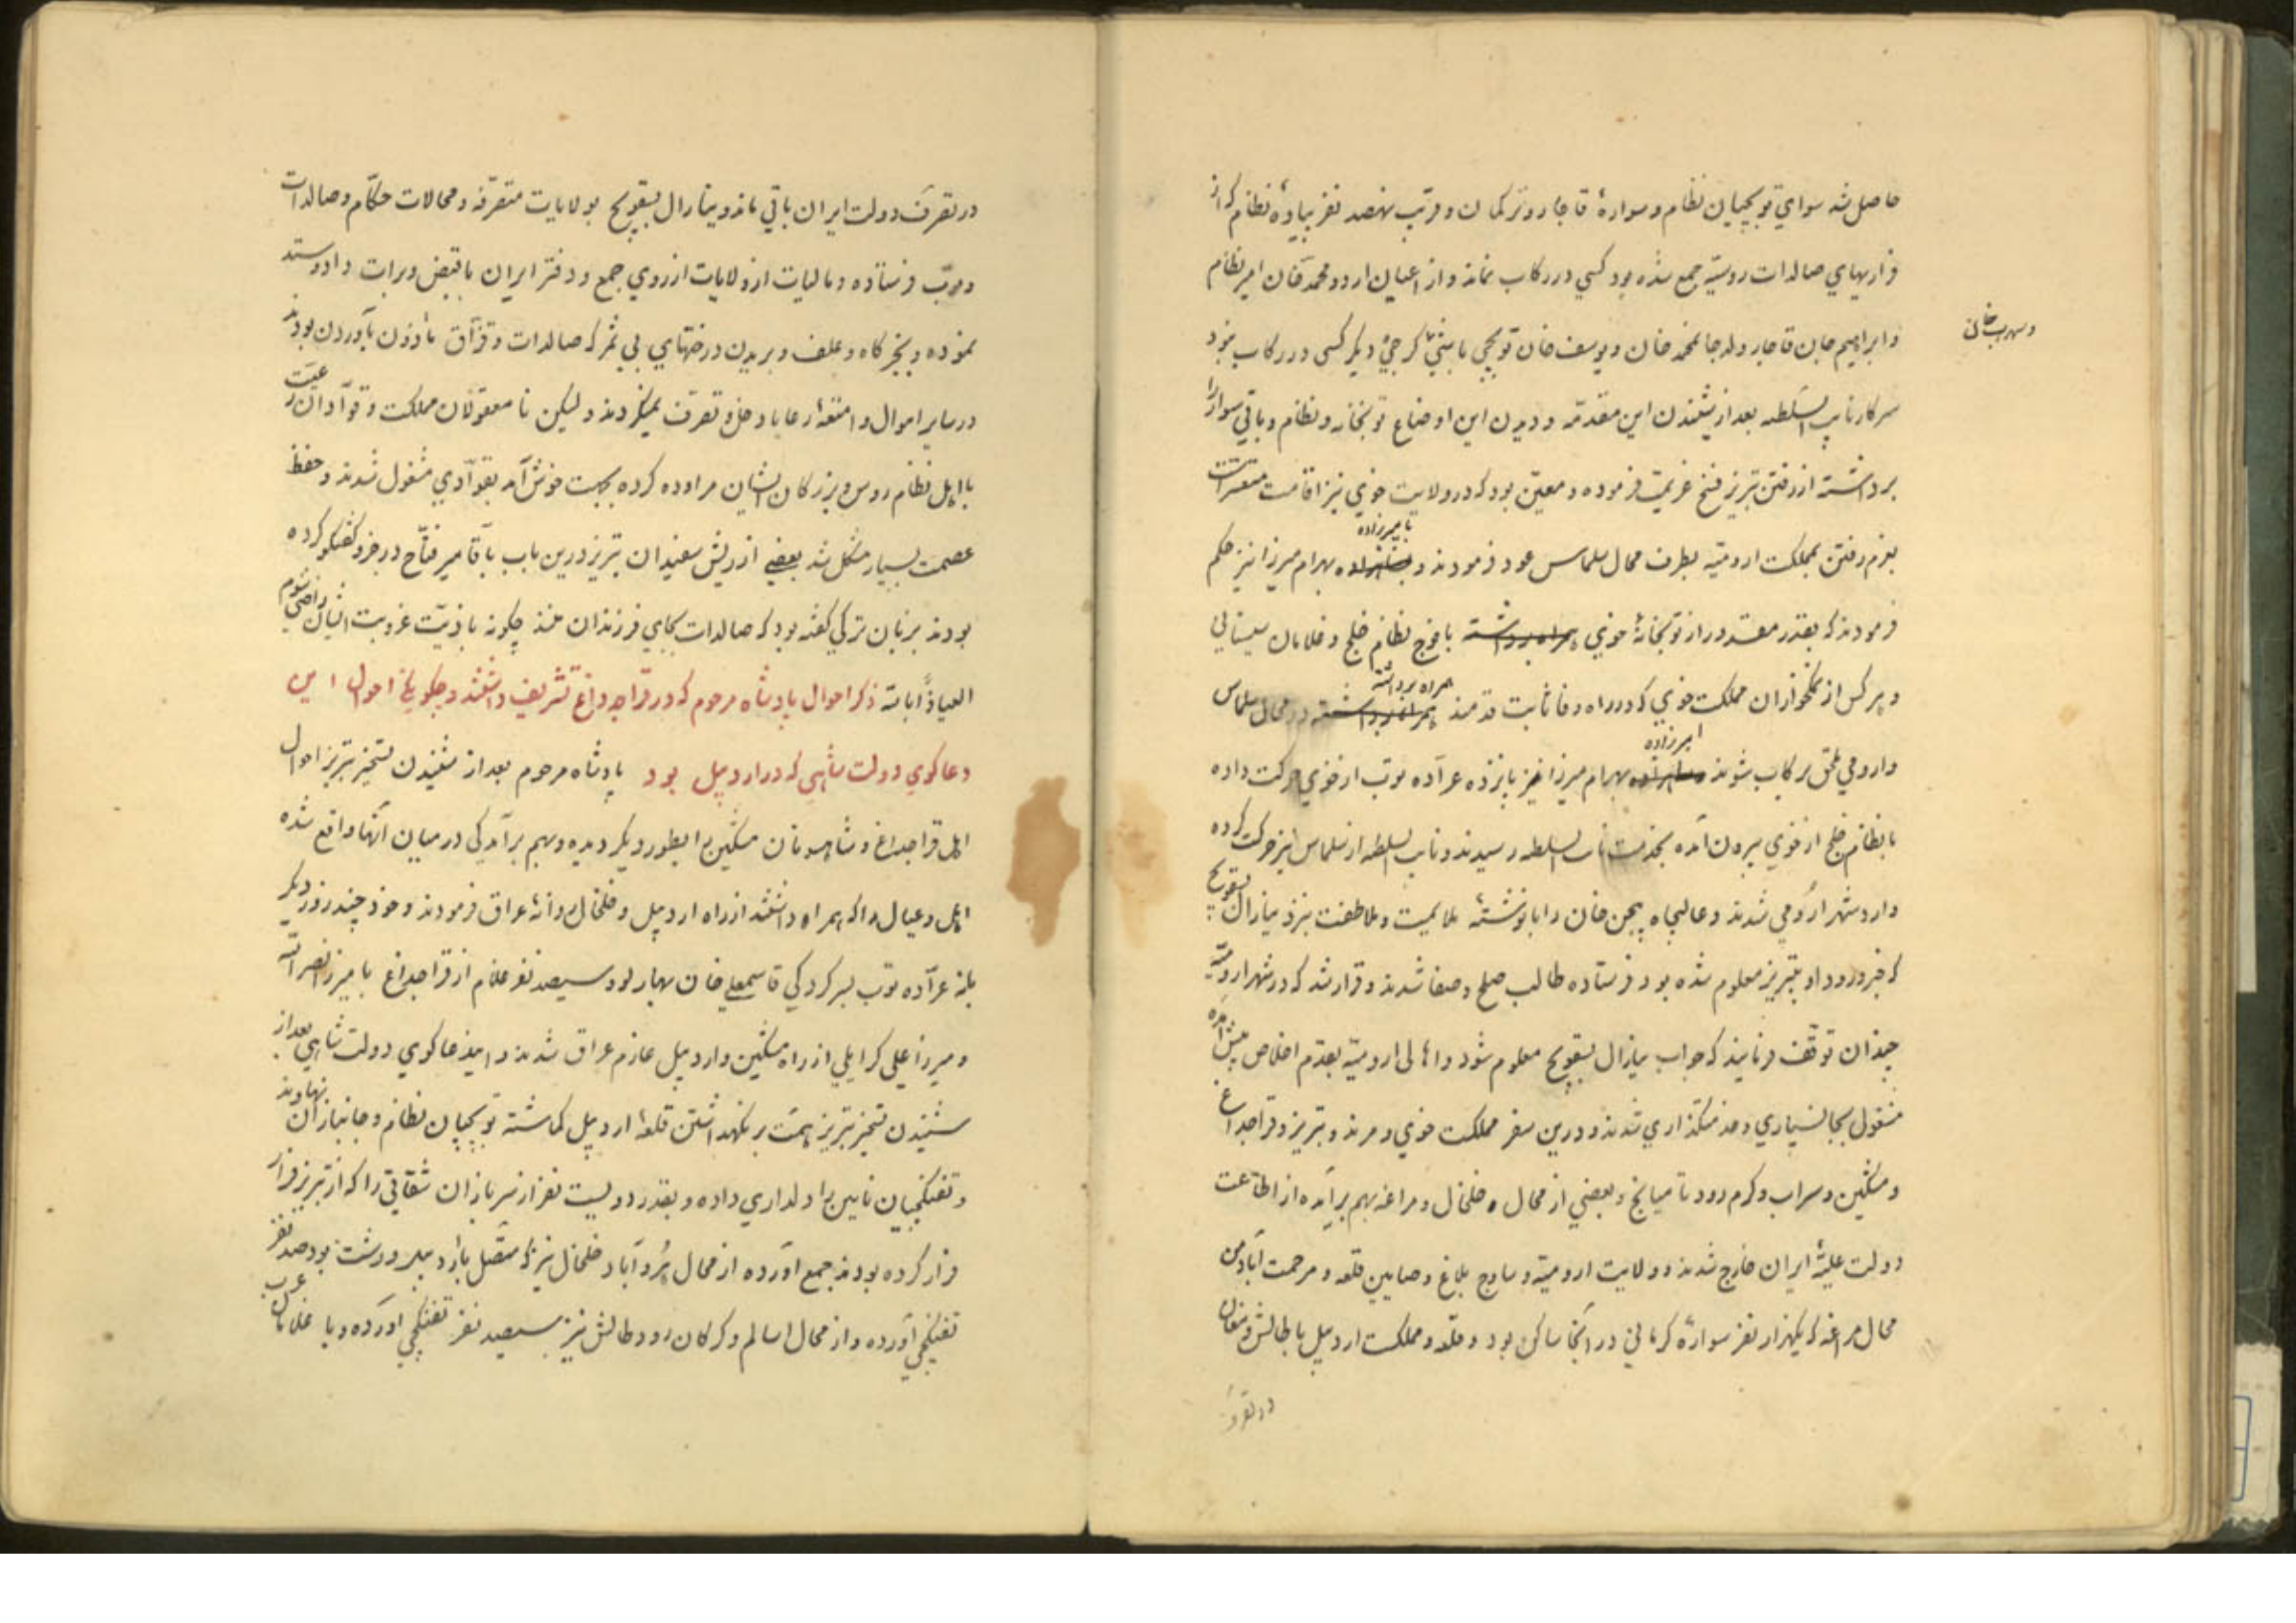 حاصل شد سوای توپچیان نظام و سواره قاجار و ترکمان و قریب نهصد نفر پیاده نظام که از
فراریهای صالدات روسیه جمع شده بود کسی در رکاب نماند و از اعیان اردو محمد خان امیر نظام
و ابراهیم خان قاجار ولد جانمحمد خان و یوسف خان توپچی باشی گرجی دیگر کسی در رکاب نبود
و سهراب خان
سرکار نایب السلطنه بعد از شنیدن این مقدمه و دیدن این اوضاع توپخانه و نظام و باقی سواره را
برداشته از رفتن تبریز فسخ عزیمت فرموده و معین بود که در ولایت خوی نیز اقامت متعسر است
بعزم رفتن بمملکت ارومیه بطرف محال سلماس عود فرمودند و بامیرزاده بهرام میرزا نیز حکم
فرمودند که بقدر مقدور از توپخانه خوی همراه برداشته با فوج نظام خلج و غلامان سیستانی
و هر کس از نمکخواران مملکت خوی که در راه وفا ثابت قدمند همراه برداشته در محال سلماس
و ارومی ملحق برکاب شوند امیرزاده بهرام میرزا نیز پانزده عراده توپ از خوی حرکت داده
با نظام خلج از خوی بیرون آمده بخدمت نایب السلطنه رسیدند و نایب السلطنه از سلماس نیز حرکت کرده
وارد شهر ارومی شدند و عالیجاه بیجن خان را با نوشته ملایمت و ملاطفت بنزد ینارال بسقویچ
که خبر ورود او بتبریز معلوم شده بود فرستاده طالب صلح و صفا شدند و قرار شد که در شهر ارومیه
چندان توقف فرمایند که جواب ینارال بسقویچ معلوم شود و اهالی ارومیه بقدم اخلاص پیش آمده
مشغول بجانسپاری و خدمتگذاری شدند و درین سفر مملکت خوی و مرند و تبریز و قراجداغ
و مشکین و سراب و گرم رود تا میانج و بعضی از محال خلخال و مراغه بهم برآمده از اطاعت
دولت علیه ایران خارج شدند و ولایت ارومیه و ساوج بلاغ و صاین قلعه و مرحمت آباد من
محال مراغه که یکهزار نفر سواره کرمانی در آنجا ساکن بود و قلعه و مملکت اردبیل با طالش و مغان
در تصرف
در تصرف دولت ایران باقی ماند و ینارال بسقویچ بولایت متصرفه و محالات حکام و صالدات
و توپ فرستاده و مالیات از ولایات از روی جمع و دفتر ایران با قبض و برات داد و ستد
نموده و بجز کاه و علف و بریدن درختهای بی ثمر که صالدات و قزاق ماذون بآوردن بودند
در سایر اموال و امتعه رعایا دخل و تصرف نمیکردند و لیکن نامعقولان مملکت و قوادان رعیت
با اهل نظام روس و بزرگان ایشان مراوده کرده بجهت خوش آمد بقوادی مشغول شدند و حفظ
عصمت بسیار مشکل شد بعضی از ریش سفیدان تبریز درین باب با آقا میر فتاح در جزو گفتگو کرده
بودند بزبان ترکی گفته بود که صالدات بجای فرزندان منند چگونه باذیت غربت ایشان راضی شوم
العیاذا بالله ذکر احوال پادشاه مرحوم که در قراجه داغ تشریف داشتند و چگونگی احوال این
دعاگوی دولت شاهی که در اردبیل بود پادشاه مرحوم بعد از شنیدن تسخیر تبریز احوال
اهل قراجداغ و شاهسونان مشکین را بطور دیگر دیده و بهم برآمدگی در میان آنها واقع شده
اهل و عیال را که همراه داشتند از راه اردبیل و خلخال روانه عراق فرمودند و خود چند روز دیگر
با نه عراده توپ بسرکردگی قاسمعلی خان بهارلو و سیصد نفر غلام از قراجداغ با میرزا نصرالله
و میرزا علی گرایلی از راه مشکین و اردبیل عازم عراق شدند و این دعاگوی دولت شاهی بعد از
شنیدن تسخیر تبریز همت بر نگهداشتن قلعه اردبیل گماشته توپچیان نظام و جانبازان نهاوند
و تفنگچیان نایین را دلداری داده و بقدر دویست نفر از سربازان شقاقی را که از تبریز فرار
فرار کرده بودند جمع آورده از محال بُرُو آباد خلخال نیز که متصل باردبیل و رشت بود صد نفر
تفنگچی آورده و از محال اسالم و کرکان رود طالش نیز سیصد نفر تفنگچی آورده و با غلامان عرب